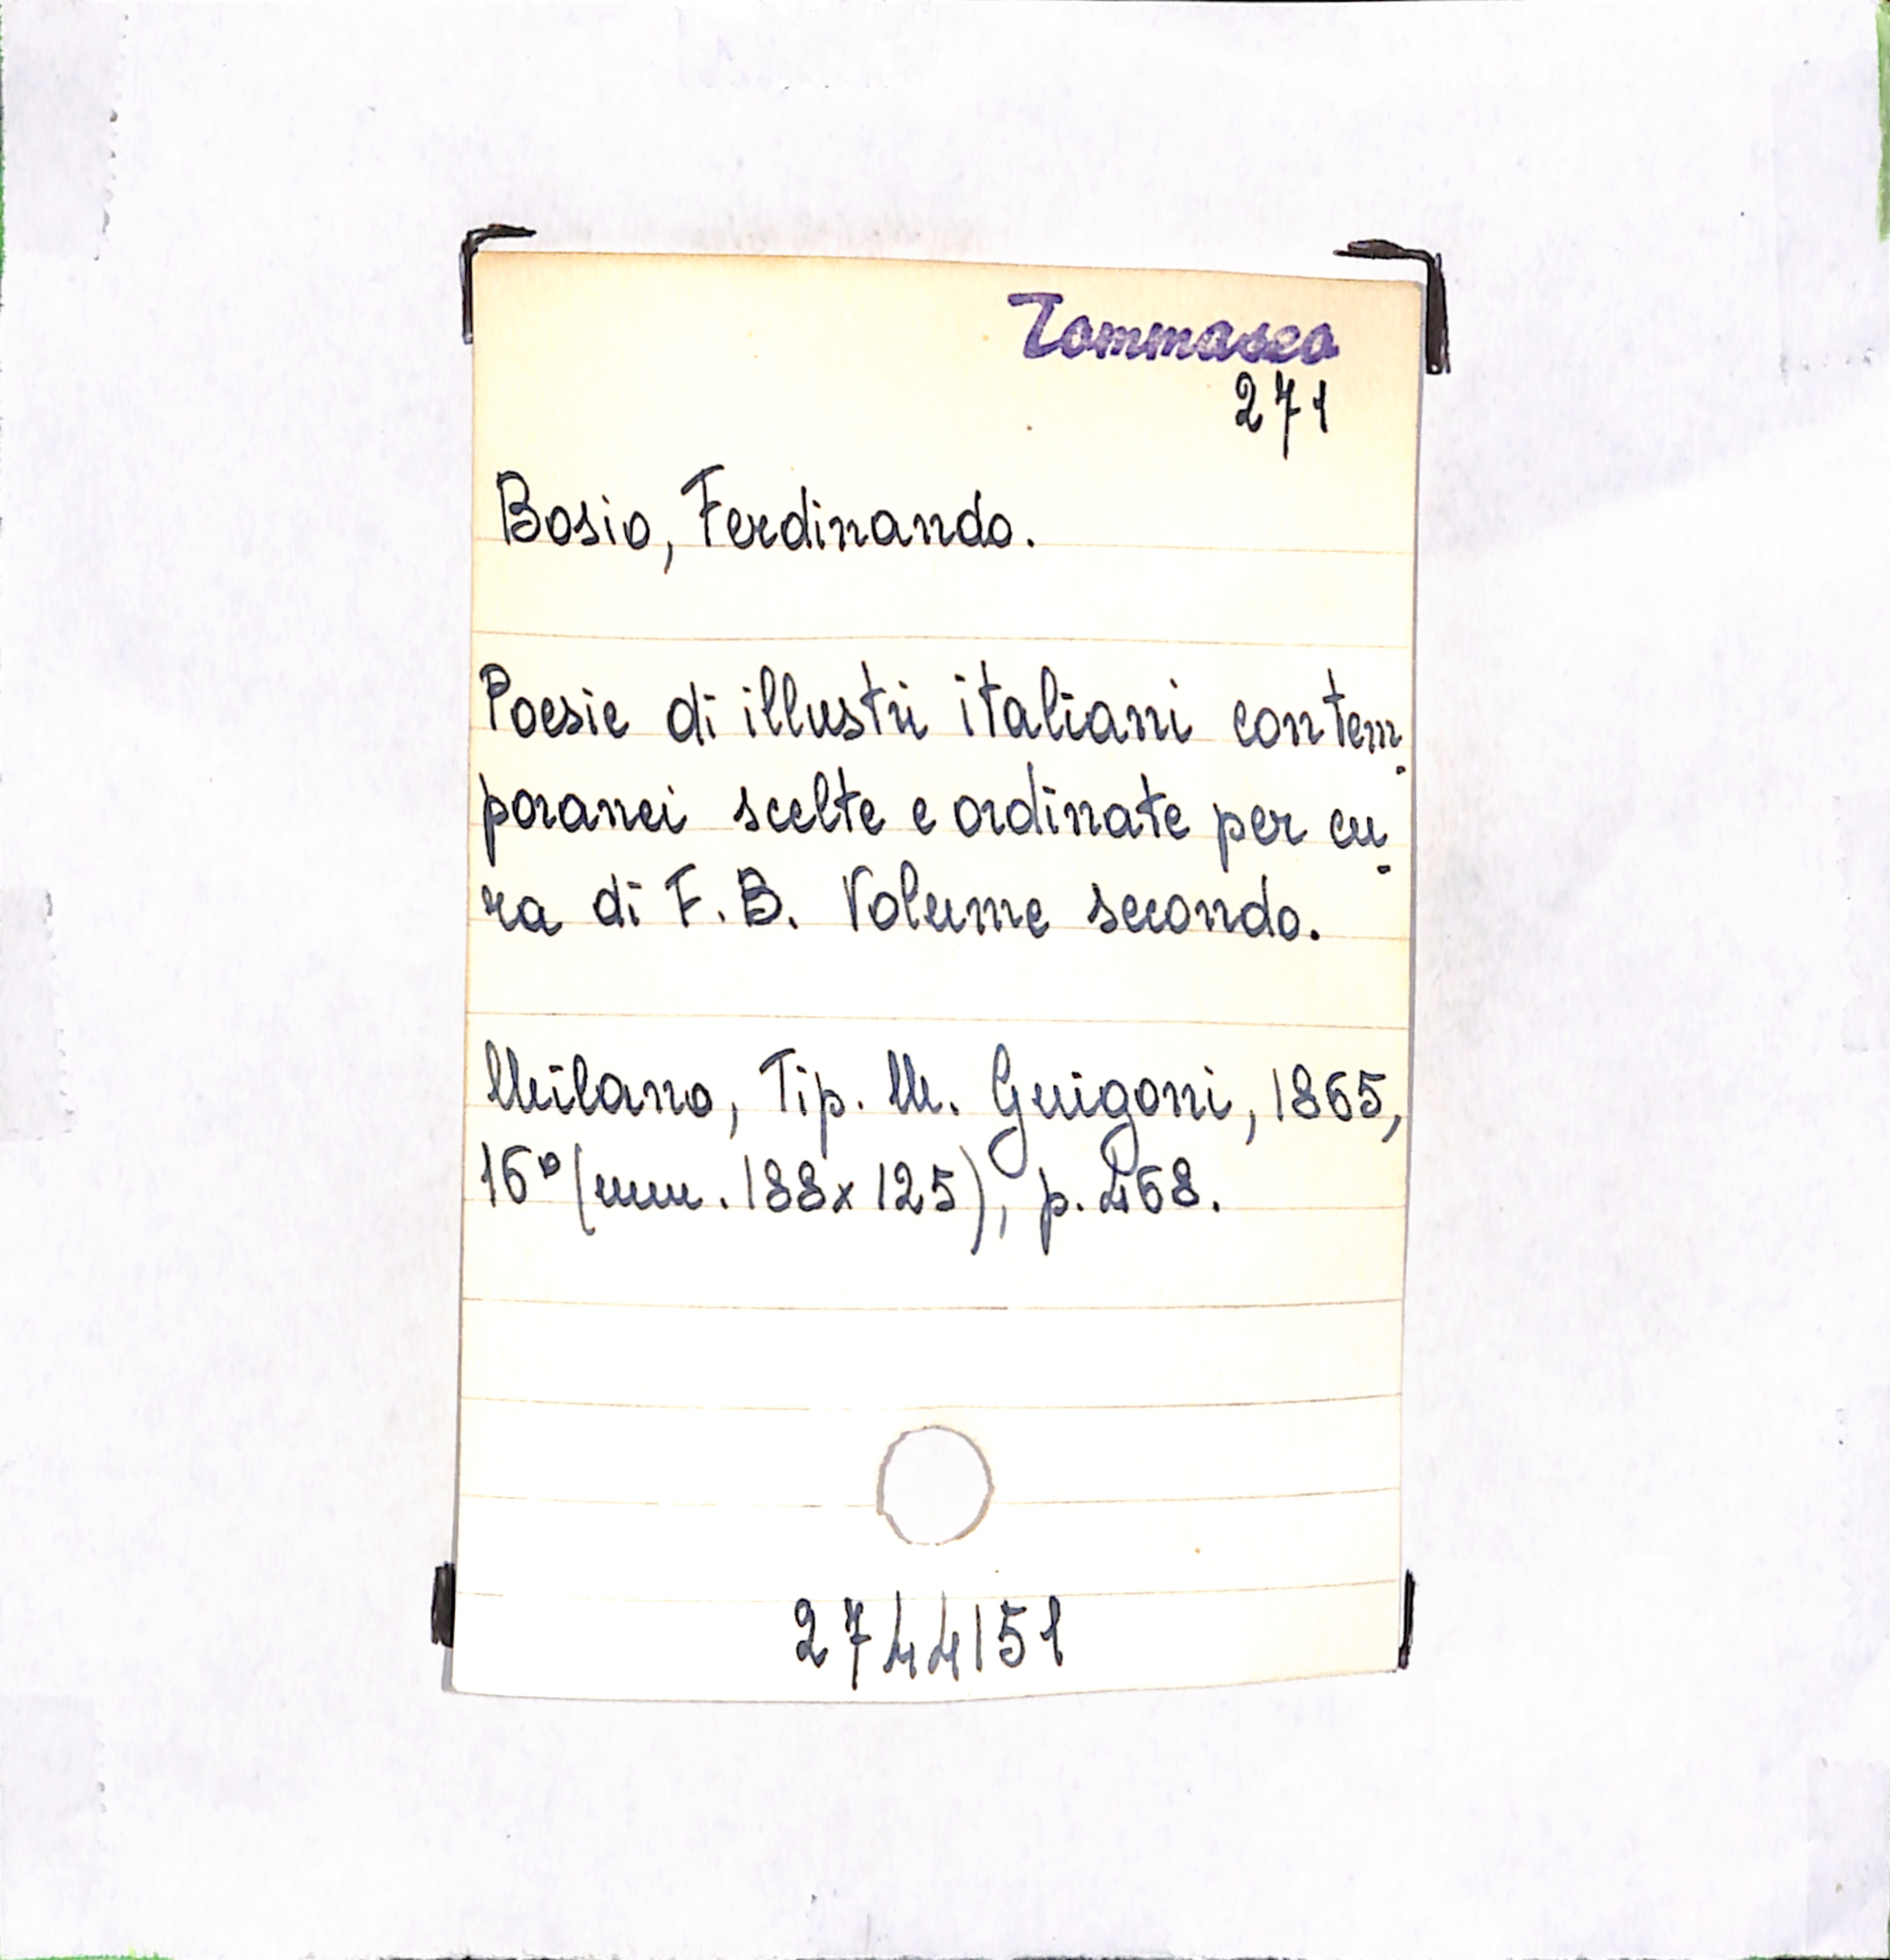 Tommaseo
271
Bosio, Ferdinando.
Poesie di illustri italiani contem-
poranei scelte e ordinate per cu-
ra di F. B. Volume secondo.
Milano, Tip. M. Guigoni, 1865,
16° (mm. 188x125), p. 468.
2744151